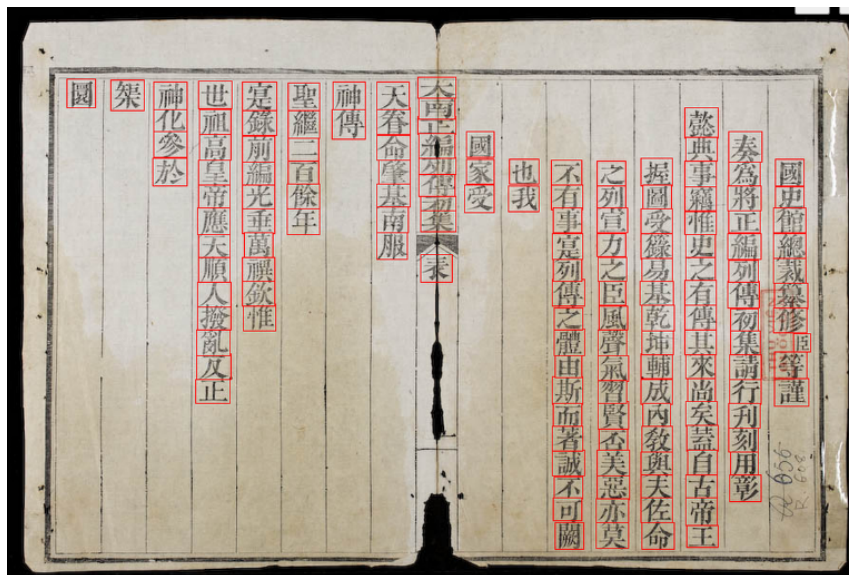 國史館總裁纂修臣等謹
奏爲將正編列傳初集請行刋刻用彰
懿典事竊惟史之有傳其來尚矣蓋自古帝王
握圖受籙易基乾坤輔成內敎與天佐命
之列宣力之臣風聲氣習賢否美惡亦莫
不有事寔列傳之體由斯而著誠不可闕
也我
國家受
大南正編列傳初集 表
天眷命肇基南服
神傳
聖繼二百餘年
寔錄前編光垂萬禩欽惟
世祖高皇帝應天順人撥亂反正
神化參於
榘
圜